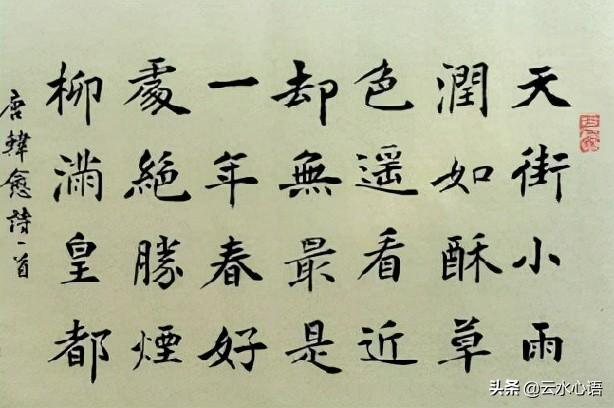 天街小雨
潤如酥草
色遥看近
却無最是
一年春好
處絶勝煙
柳滿皇都
唐韓愈詩一首
头条 @云水心语